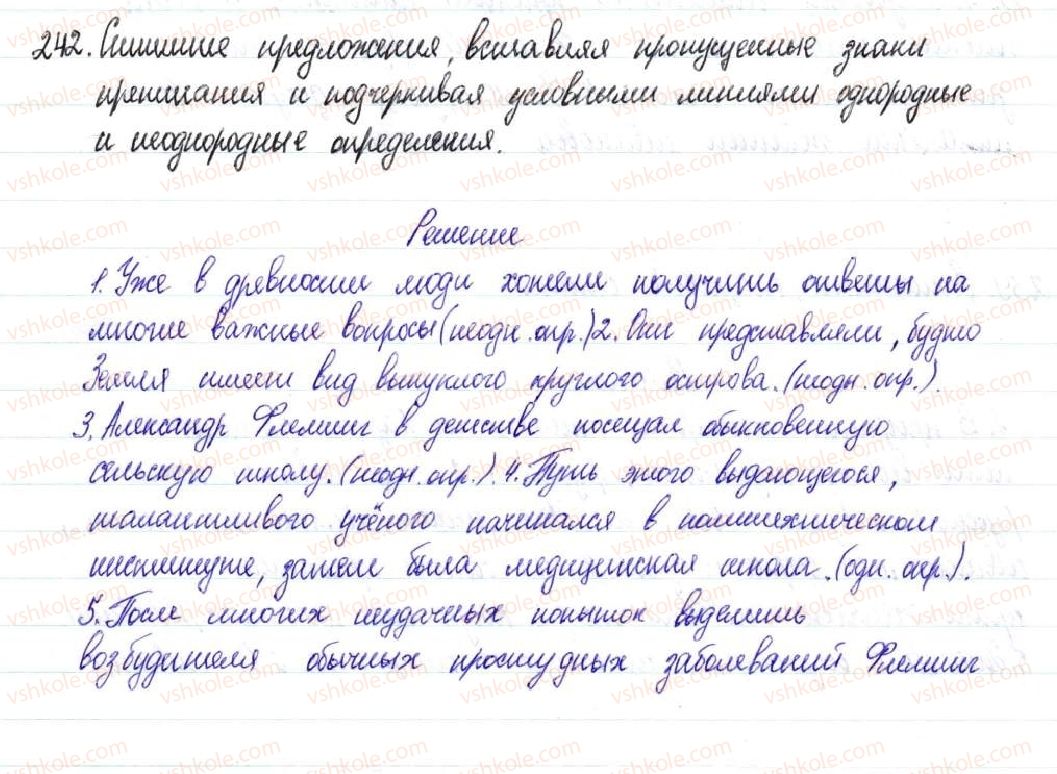 242. Спишите предложения, вставляя пропущенные знаки
препинания и подчеркивая условными линиями однородные
и неоднородные определения.
Решение
1. Уже в древности люди хотели получить ответы на
многие важные вопросы (неодн. опр.) 2. Они представляли, будто
Земля имеет вид выпуклого круглого острова. (неодн. опр.).
3. Александр Флеминг в детстве посещал обыкновенную
сельскую школу. (неодн. опр.). 4. Путь этого выдающегося,
талантливого учёного начинался в политехническом
институте, затем была медицинская школа. (одн. опр.).
5. После многих неудачных попыток выделить
возбудителя обычных простудных заболеваний Флеминг